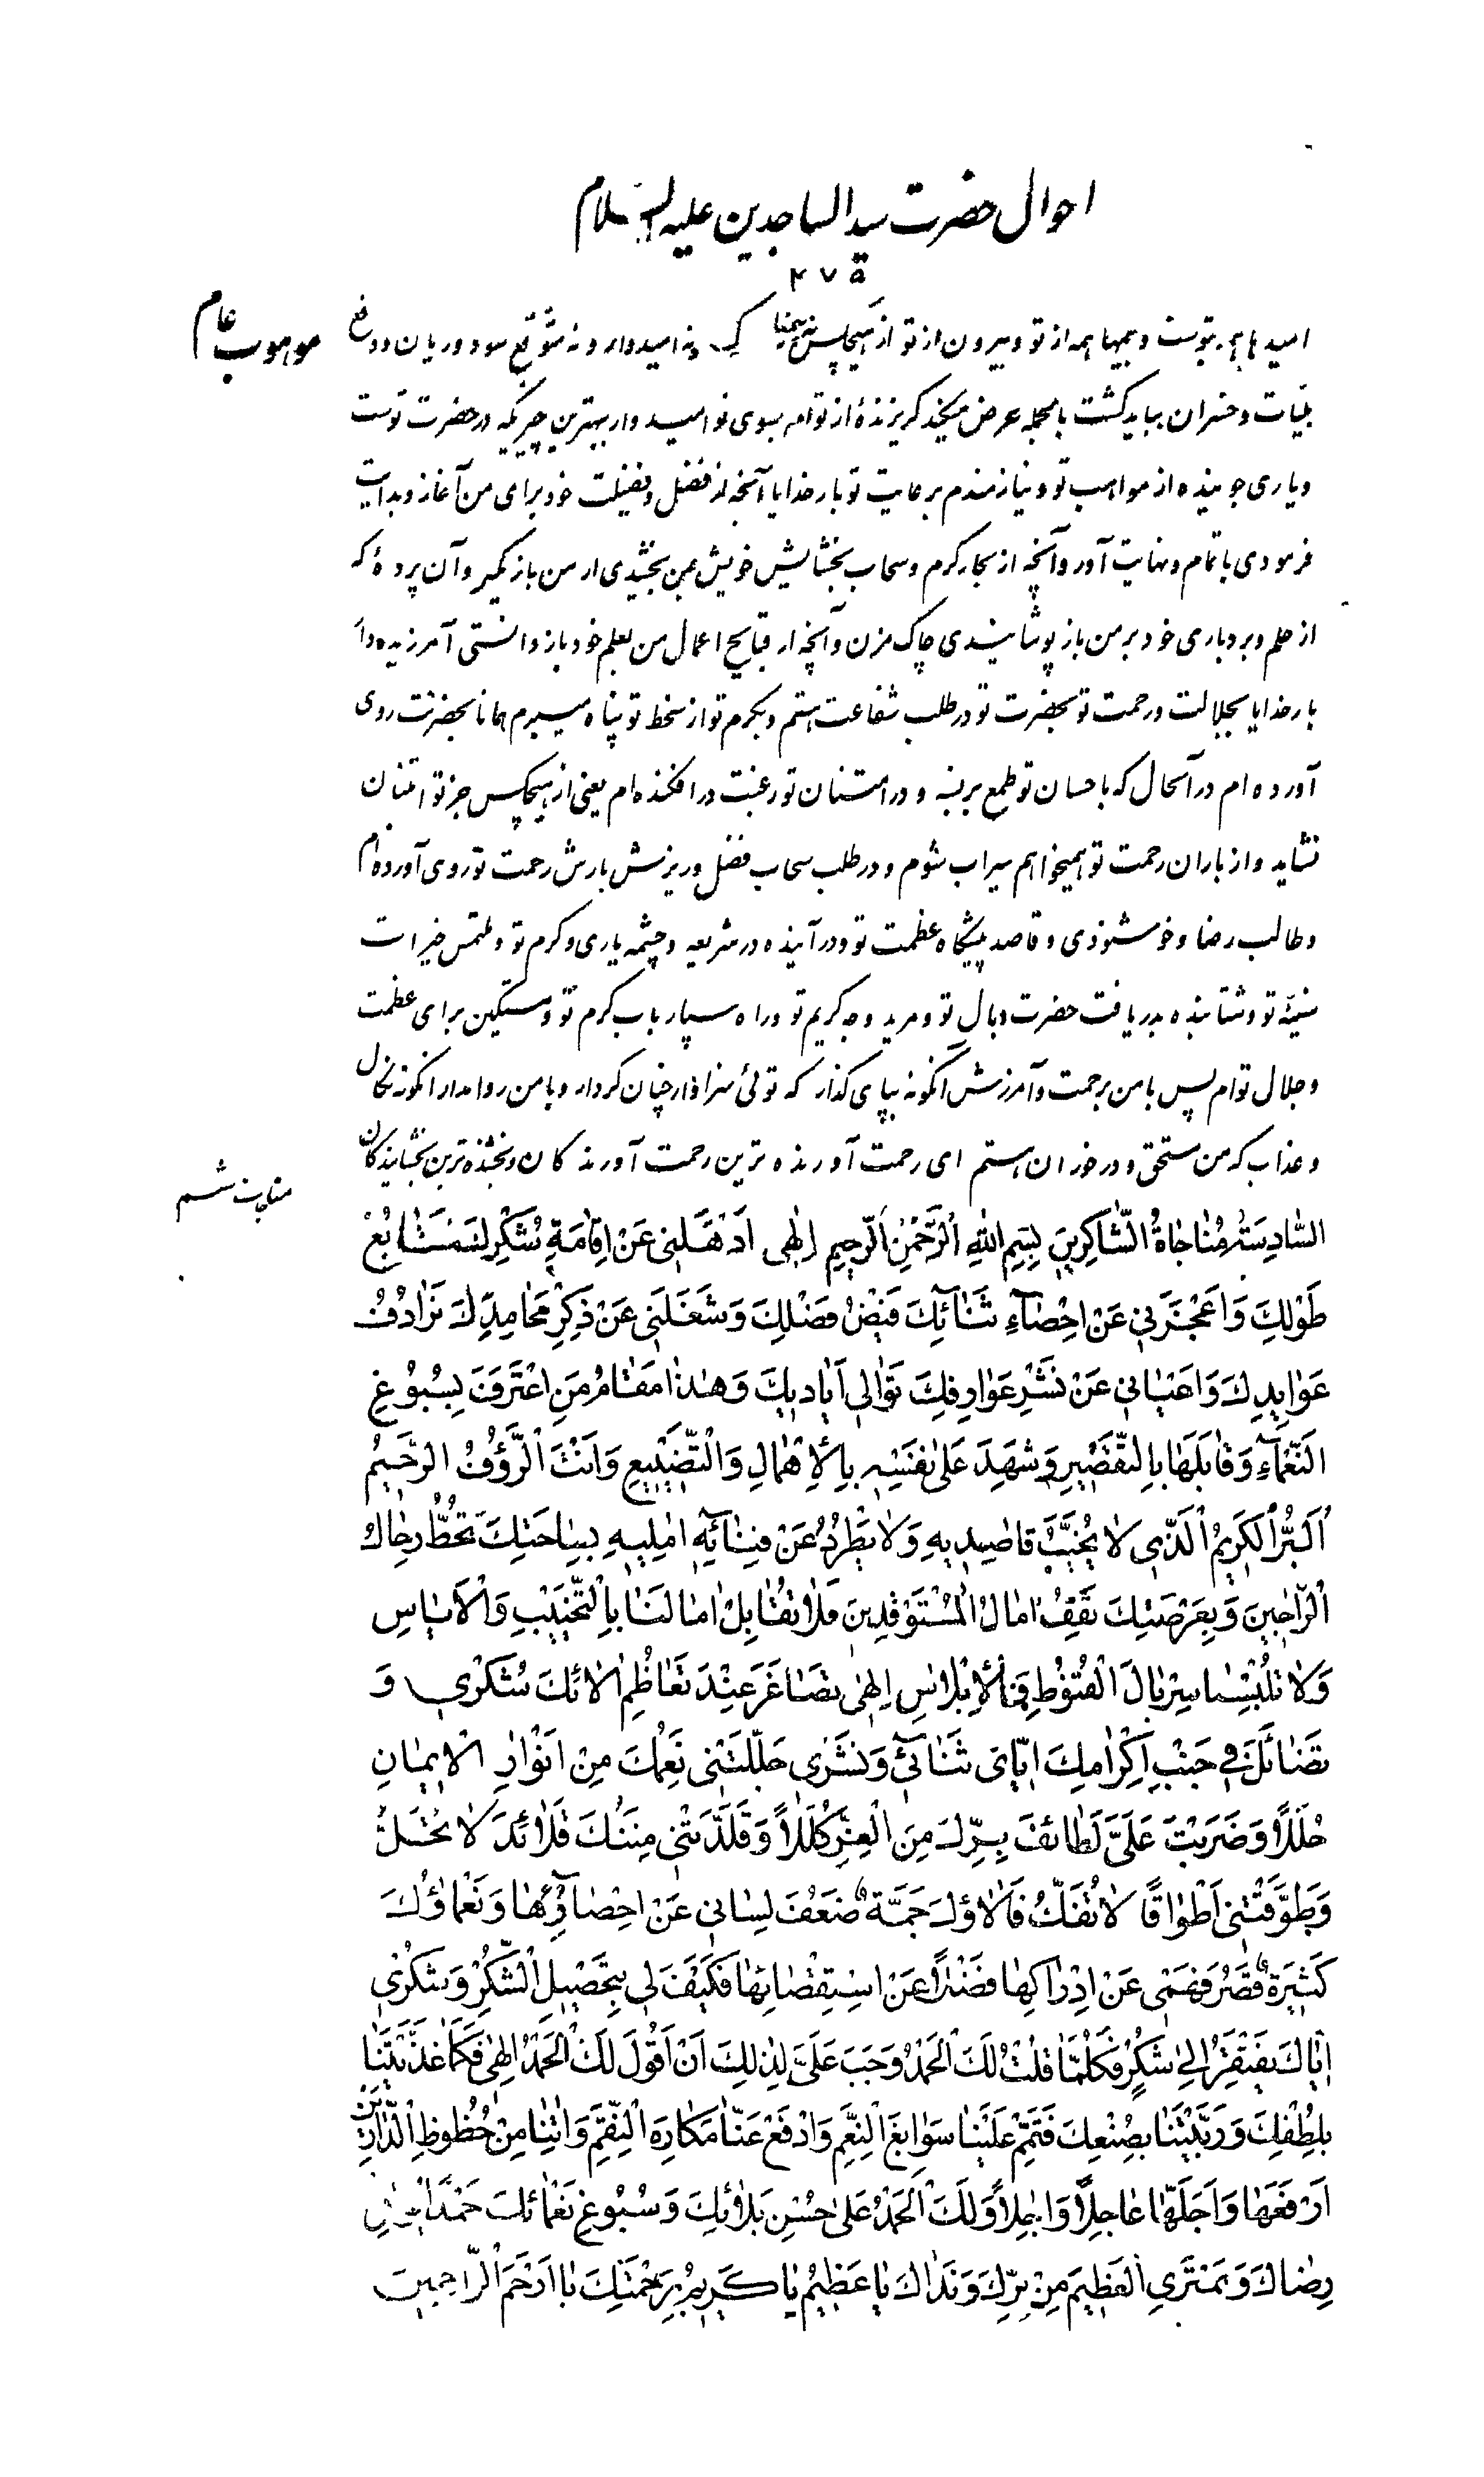 احوال حضرت سید الساجدین علیه السلام
۴۷۵
امیدها همه بتوست و بیمها همه از تو و بیرون از تو از هیچکس نه بیمی نه امیدوار و نه متوقع سود و زیان و دفع
موهوب عام
بلیات و خسران بباید گشت بالجمله عرض میکند گریزنده از توام بسوی تو امیدوار بهترین چیزیکه در حضرت توست
و یاری جوینده از مواهب تو و نیازمندم برعایت تو بار خدایا آنچه از فضل و فضیلت خود برای من آغاز و بدایت
فرمودی باتمام و نهایت آور و آنچه از بحار کرم و سحاب بخشایش خویش بمن بخشیدی از من باز نگیر و آن پرده که
از حلم و بردباری خود بر من باز پوشانیدی چاک مزن و آنچه از قبایح اعمال من بعلم خود باز دانستی آمرزیده دار
بار خدایا بجلالت و رحمت تو بحضرت تو در طلب شفاعت هستم و بکرم تو از سخط تو پناه میبرم همانا بحضرتت روی
آورده ام در آنحال که باحسان تو طمع بربسته و در امتنان تو رغبت در افکنده ام یعنی از هیچکس جز تو امتنان
نشاید و از باران رحمت تو همیخواهم سیراب شوم و در طلب سحاب فضل و ریزش بارش رحمت تو روی آورده ام
و طالب رضا و خوشنودی و قاصد پیشگاه عظمت تو و در آینده در شریعه و چشمه یاری و کرم تو و ملتمس خیرات
سنیّه تو و شتابنده بدریافت حضرت و بال تو و مرید وجه کریم تو و راه سپار باب کرم تو و مستکین برای عظمت
و جلال توام پس با من برحمت و آمرزش آنگونه بپای گذار که توئی سزاوار چنان کردار و با من روا مدار آنگونه نکال
و عذاب که من مستحق و در خور آن هستم ای رحمت آورنده ترین رحمت آورندکان و بخشنده ترین بخشایندکان
مناجات ششم
السَّادِسَةُ مُنَاجَاةُ الشَّاكِرِينَ بِسْمِ اللهِ الرَّحْمٰنِ الرَّحِيمِ اِلٰهِى اَذْهَلَنِى عَنْ اِقَامَةِ شُكْرِكَ تَتَابُعُ
طَوْلِكَ وَاَعْجَزَنِى عَنْ اِحْصَآءِ ثَنَآئِكَ فَيْضُ فَضْلِكَ وَشَغَلَنِى عَنْ ذِكْرِ مَحَامِدِكَ تَرَادُفُ
عَوَايِدِكَ وَاَعْيَانِى عَنْ نَشْرِ عَوَارِفِكَ تَوَالِى اَيَادِيكَ وَهٰذَا مَقَامُ مَنِ اعْتَرَفَ بِسُبُوغِ
النَّعْمَآءِ وَقَابَلَهَا بِالتَّقْصِيرِ وَشَهِدَ عَلٰى نَفْسِهِ بِالْاِهْمَالِ وَالتَّضْيِيعِ وَاَنْتَ الرَّؤُفُ الرَّحِيمُ
اَلْبَرُّ الْكَرِيمُ الَّذِى لَا يُخَيِّبُ قَاصِدِيهِ وَلَا يَطْرُدُ عَنْ فِنَآئِهِ اٰمِلِيهِ بِسَاحَتِكَ تَحُطُّ رِحَالُ
الرَّاجِينَ وَبِعَرْصَتِكَ تَقِفُ اٰمَالُ الْمُسْتَرْفِدِينَ فَلَا تُقَابِلْ اٰمَالَنَا بِالتَّخْيِيبِ وَالْاِيَاسِ
وَلَا تُلْبِسْنَا سِرْبَالَ الْقُنُوطِ وَالْاِبْلَاسِ اِلٰهِى تَصَاغَرَ عِنْدَ تَعَاظُمِ اٰلَائِكَ شُكْرِى وَ
تَضَائَلَ فِى جَنْبِ اِكْرَامِكَ اِيَّاىَ ثَنَآئِى وَنَشْرِى جَلَّلَتْنِى نِعَمُكَ مِنْ اَنْوَارِ الْاِيمَانِ
حُلَلًا وَضَرَبَتْ عَلَىَّ لَطَائِفُ بِرِّكَ مِنَ الْعِزِّ كُلَلًا وَقَلَّدَتْنِى مِنَنُكَ قَلَائِدَ لَا تُحَلُّ
وَطَوَّقَتْنِى اَطْوَاقًا لَا تُفَلُّ فَاٰلَاؤُكَ جَمَّةٌ ضَعُفَ لِسَانِى عَنْ اِحْصَآئِهَا وَنَعْمَاؤُكَ
كَثِيرَةٌ قَصُرَ فَهْمِى عَنْ اِدْرَاكِهَا فَضْلًا عَنِ اسْتِقْصَائِهَا فَكَيْفَ لِى بِتَحْصِيلِ الشُّكْرِ وَشُكْرِى
اِيَّاكَ يَفْتَقِرُ اِلٰى شُكْرٍ فَكُلَّمَا قُلْتُ لَكَ الْحَمْدُ وَجَبَ عَلَىَّ لِذٰلِكَ اَنْ اَقُولَ لَكَ الْحَمْدُ اِلٰهِى فَكَمَا غَذَّيْتَنَا
بِلُطْفِكَ وَرَبَّيْتَنَا بِصُنْعِكَ فَتَمِّمْ عَلَيْنَا سَوَابِغَ النِّعَمِ وَادْفَعْ عَنَّا مَكَارِهَ النِّقَمِ وَاٰتِنَا مِنْ حُظُوظِ الدَّارَيْنِ
اَرْفَعَهَا وَاَجَلَّهَا عَاجِلًا وَاٰجِلًا وَلَكَ الْحَمْدُ عَلٰى حُسْنِ بَلَائِكَ وَسُبُوغِ نَعْمَائِكَ حَمْدًا يُوَافِقُ
رِضَاكَ وَيَمْتَرِى الْعَظِيمَ مِنْ بِرِّكَ وَنَدَاكَ يَا عَظِيمُ يَا كَرِيمُ بِرَحْمَتِكَ يَا اَرْحَمَ الرَّاحِمِينَ